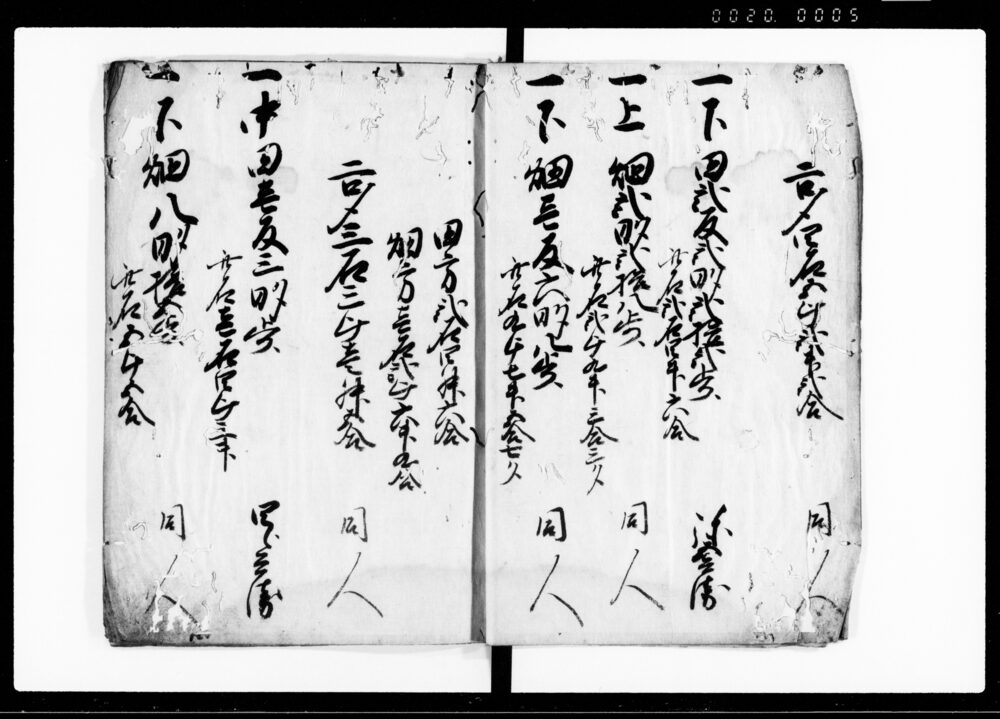 0020. 0005
高〆四石五斗弐升弐合 同人
一下田弐反弐畝弐拾弐歩
此高弐石四升六合 兵衛
一上畑弐畝弐拾八歩
此高弐斗九升三合三夕 同人
一下畑壱反六畝七歩
此高九斗七升五合七夕 同人
田方弐石四升六合
畑方壱石弐斗六升九合
高〆三石三斗壱升五合 同人
一中田壱反三畝歩
此高壱石四斗三升 兵衛
一下畑八畝拾
此高五斗 合 同人